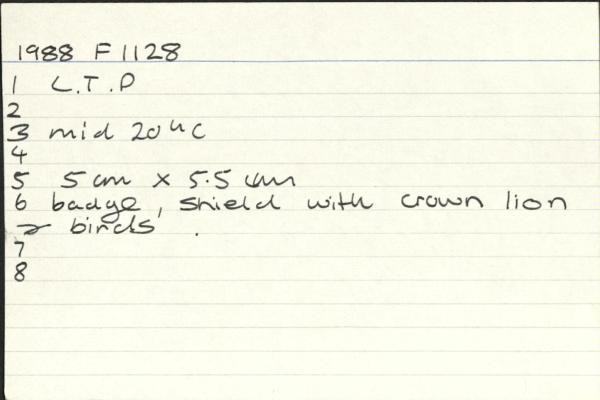 1988 F1128
1 L.T.P
2
3 mid 20th C
4
5 5cm x 5.5cm
6 badge, shield with crown lion
& birds.
7
8